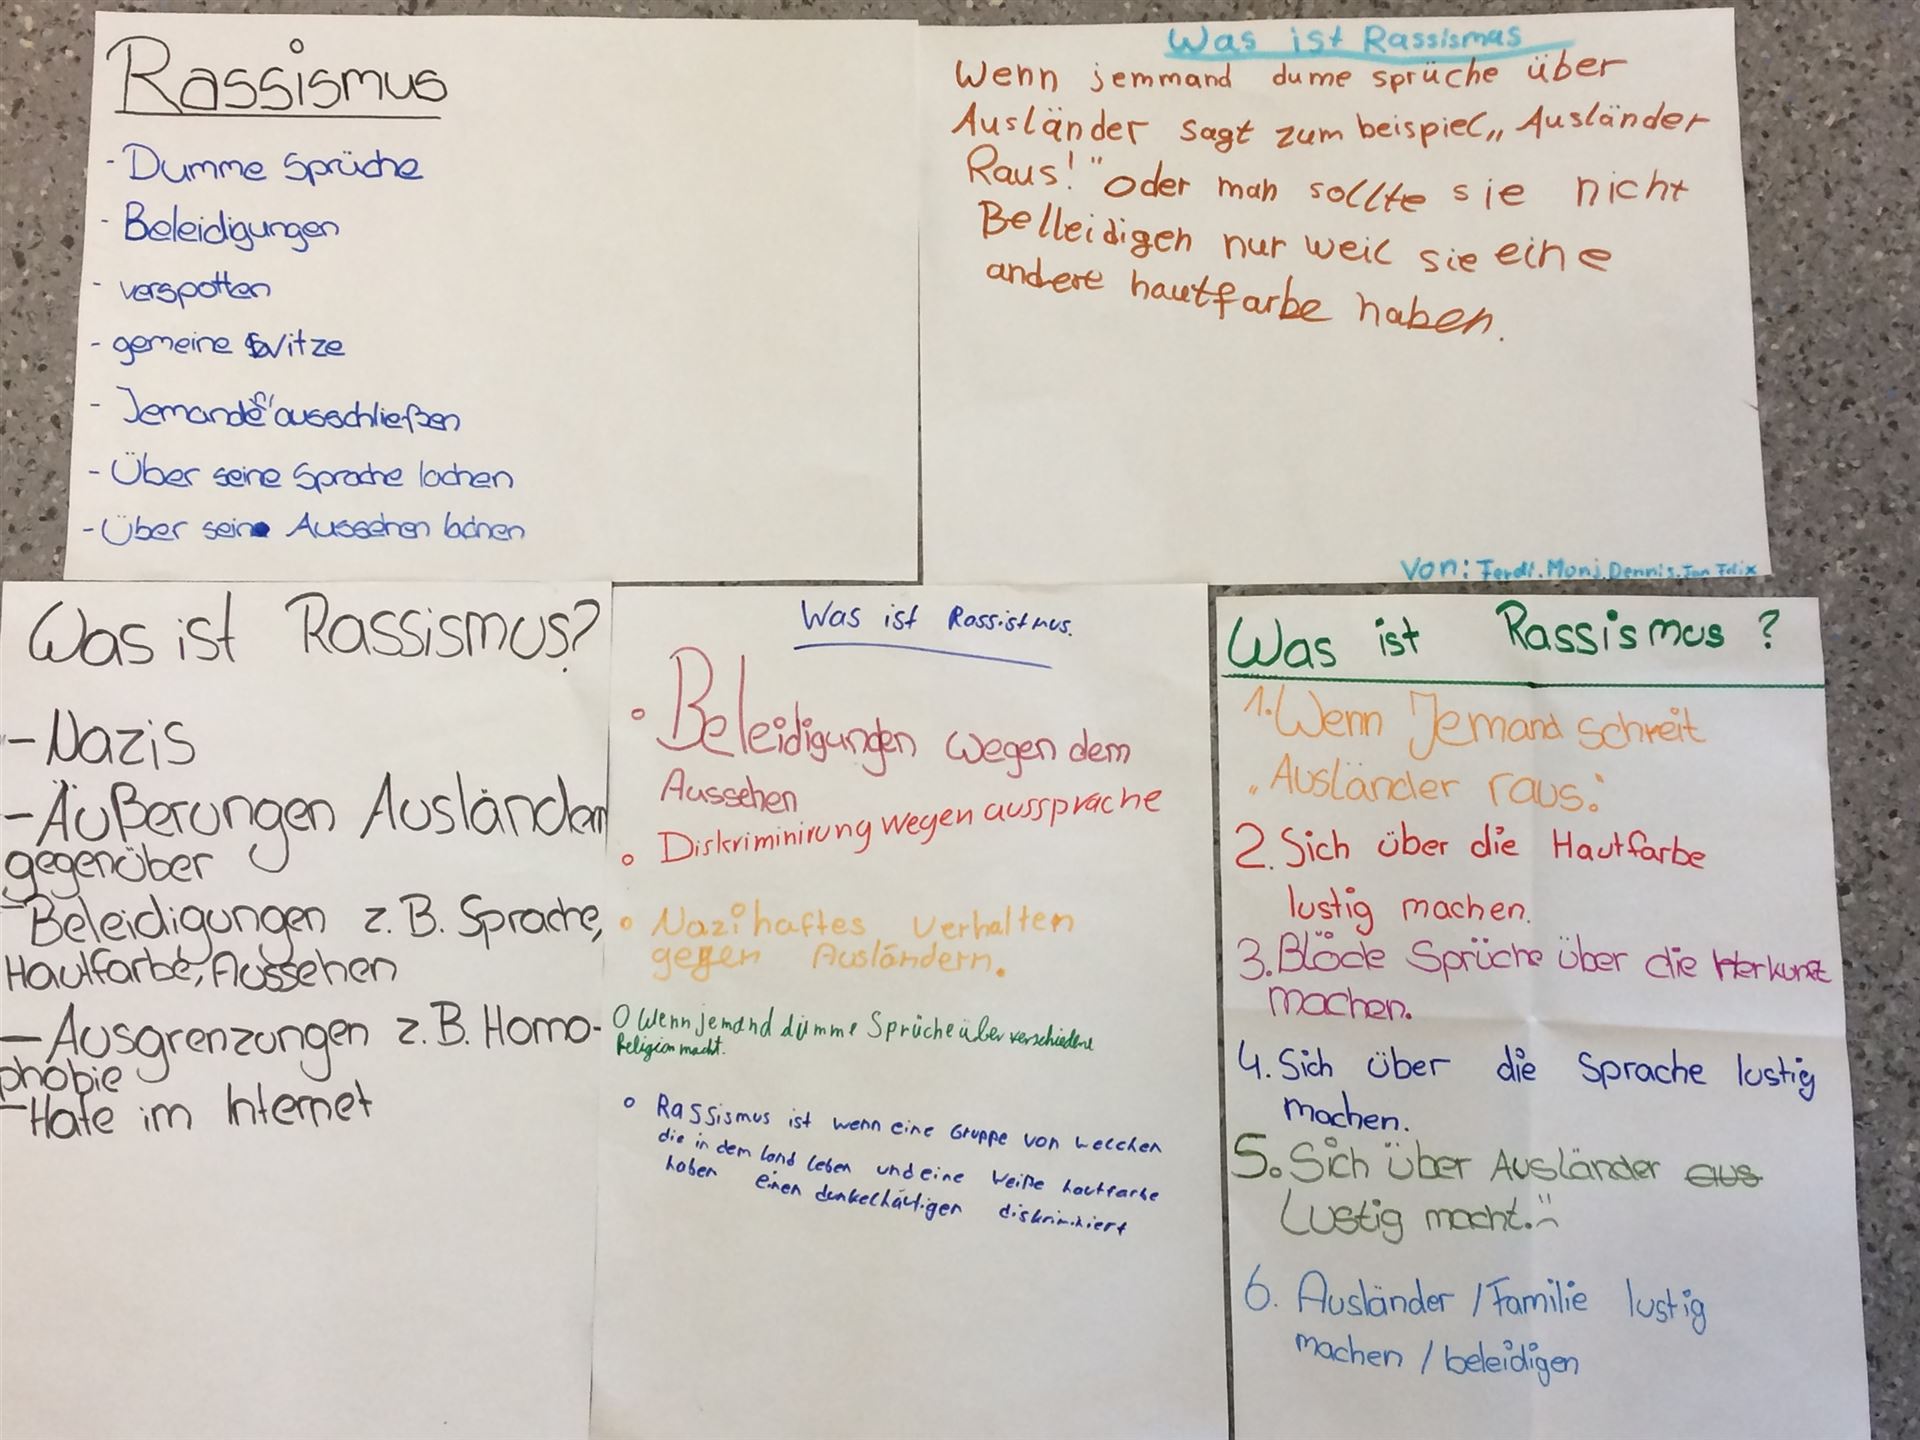 Rassismus
- Dumme Sprüche
- Beleidigungen
- verspotten
- gemeine Witze
- Jemanden ausschließen
- Über seine Sprache lachen
- Über sein Aussehen lachen
Was ist Rassismus
Wenn jemmand dume sprüche über
Ausländer sagt zum beispiel „Ausländer
Raus!" oder man sollte sie nicht
Belleidigen nur weil sie eine
andere hautfarbe haben.
Von: Ferdi, Moni, Dennis, Jan Felix
Was ist Rassismus?
- Nazis
- Äußerungen Ausländern
gegenüber
- Beleidigungen z.B. Sprache,
Hautfarbe, Aussehen
- Ausgrenzungen z.B. Homo-
phobie
- Hate im Internet
Was ist Rassistmus.
• Beleidigungen wegen dem
Aussehen
• Diskriminirung wegen aussprache
• Nazihaftes verhalten
gegen Ausländern.
O Wenn jemand dumme Sprüche über verschiedene
Religion macht.
• Rassismus ist wenn eine Gruppe von welchen
die in dem land leben und eine weiße hautfarbe
haben einen dunkelhäutigen diskriminiert
Was ist Rassismus?
1. Wenn Jemand schreit
„Ausländer raus."
2. Sich über die Hautfarbe
lustig machen.
3. Blöde Sprüche über die Herkunft
machen.
4. Sich über die Sprache lustig
machen.
5. Sich über Ausländer aus
Lustig macht.
6. Ausländer / Familie lustig
machen / beleidigen